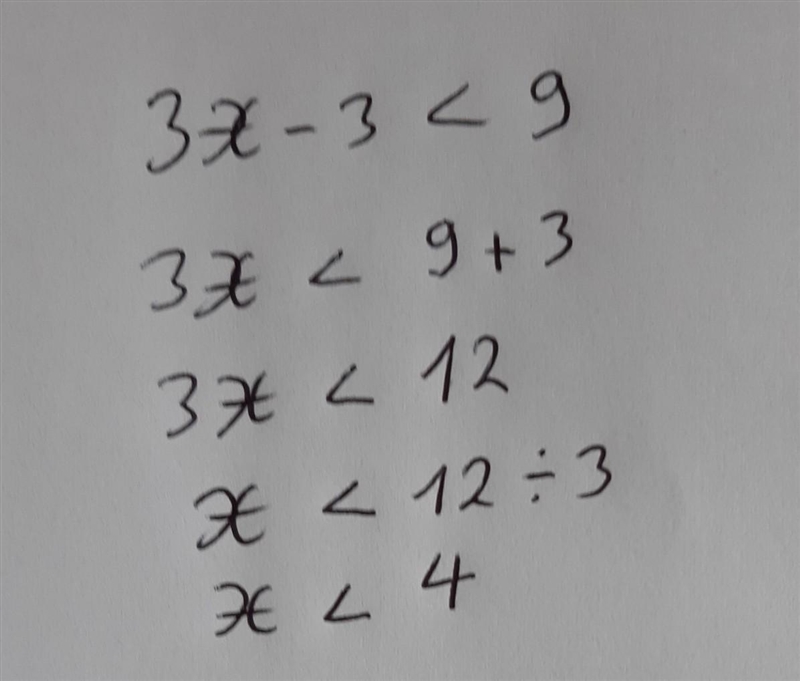 3x - 3 < 9
3x < 9 + 3
3x < 12
x < 12 ÷ 3
x < 4